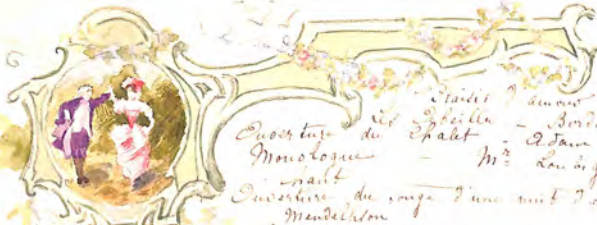 Plaisir d'amour
Les Abeilles - Bord
Ouverture du Chalet - Adam
Monologue - Mr
chant
Ouverture du songe d'une nuit d'é
Mendelhson